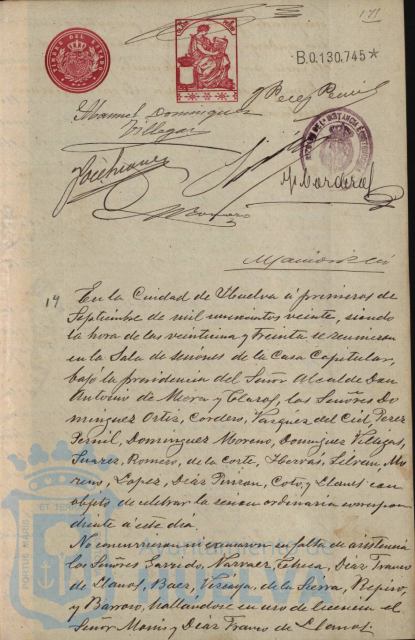 171
TIMBRE DEL ESTADO
B.0.130.745*
Manuel Dominguez
Villegas
J Perez Pernil
JUZGADO DE 1ª INSTANCIA
M Cordero
Romero
19 En la Ciudad de Huelva á primeros de
Septiembre de mil novecientos veinte, siendo
la hora de las veintiuna y treinta se reunieron
en la Sala de sesiones de la Casa Capitular,
bajo la presidencia del Señor Alcalde Don
Antonio de Mora y Claros, los Señores Do
minguez Ortiz, Cordero, Vazquez del Cid, Perez
Pernil, Dominguez Moreno, Dominguez Villegas,
Suarez, Romero, de la Corte, Hervás, Silvan, Mo
reno, Lopez, Diaz Pinzon, Coto, y Llanes con
objeto de celebrar la sesion ordinaria correspon
diente á este dia.
No concurrieron ni excusaron su falta de asistencia
los Señores Garrido, Narvaez, Checa, Diaz Franco
de Llanos, Baez, Vizcaya, de la Sierra, Repiso,
y Barroso, hallandose en uso de licencia el
Señor Monis y Diaz Franco de Llanos.
PORTUS MARIS ET TERRAE
Ayuntamiento de